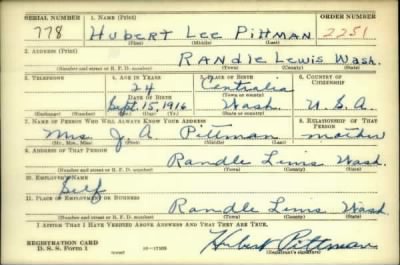 SERIAL NUMBER 1. NAME (Print) ORDER NUMBER
778 Hubert Lee Pittman 2251
(First) (Middle) (Last)
2. ADDRESS (Print)
RANDLE LEWIS WASH.
(Number and street or R. F. D. number) (Town) (County) (State)
3. TELEPHONE 4. AGE IN YEARS 5. PLACE OF BIRTH 6. COUNTRY OF CITIZENSHIP
24 Centralia
DATE OF BIRTH (Town or county)
Sept. 15, 1916 Wash. U.S.A.
(Exchange) (Number) (Mo.) (Day) (Yr.) (State or country)
7. NAME OF PERSON WHO WILL ALWAYS KNOW YOUR ADDRESS 8. RELATIONSHIP OF THAT PERSON
Mrs. J. A. Pittman mother
(Mr., Mrs., Miss) (First) (Middle) (Last)
9. ADDRESS OF THAT PERSON
Randle Lewis Wash.
(Number and street or R. F. D. number) (Town) (County) (State)
10. EMPLOYER'S NAME
Self
11. PLACE OF EMPLOYMENT OR BUSINESS
Randle Lewis Wash.
(Number and street or R. F. D. number) (Town) (County) (State)
I AFFIRM THAT I HAVE VERIFIED ABOVE ANSWERS AND THAT THEY ARE TRUE.
REGISTRATION CARD
D. S. S. Form 1 Hubert Pittman
(Registrant's signature)